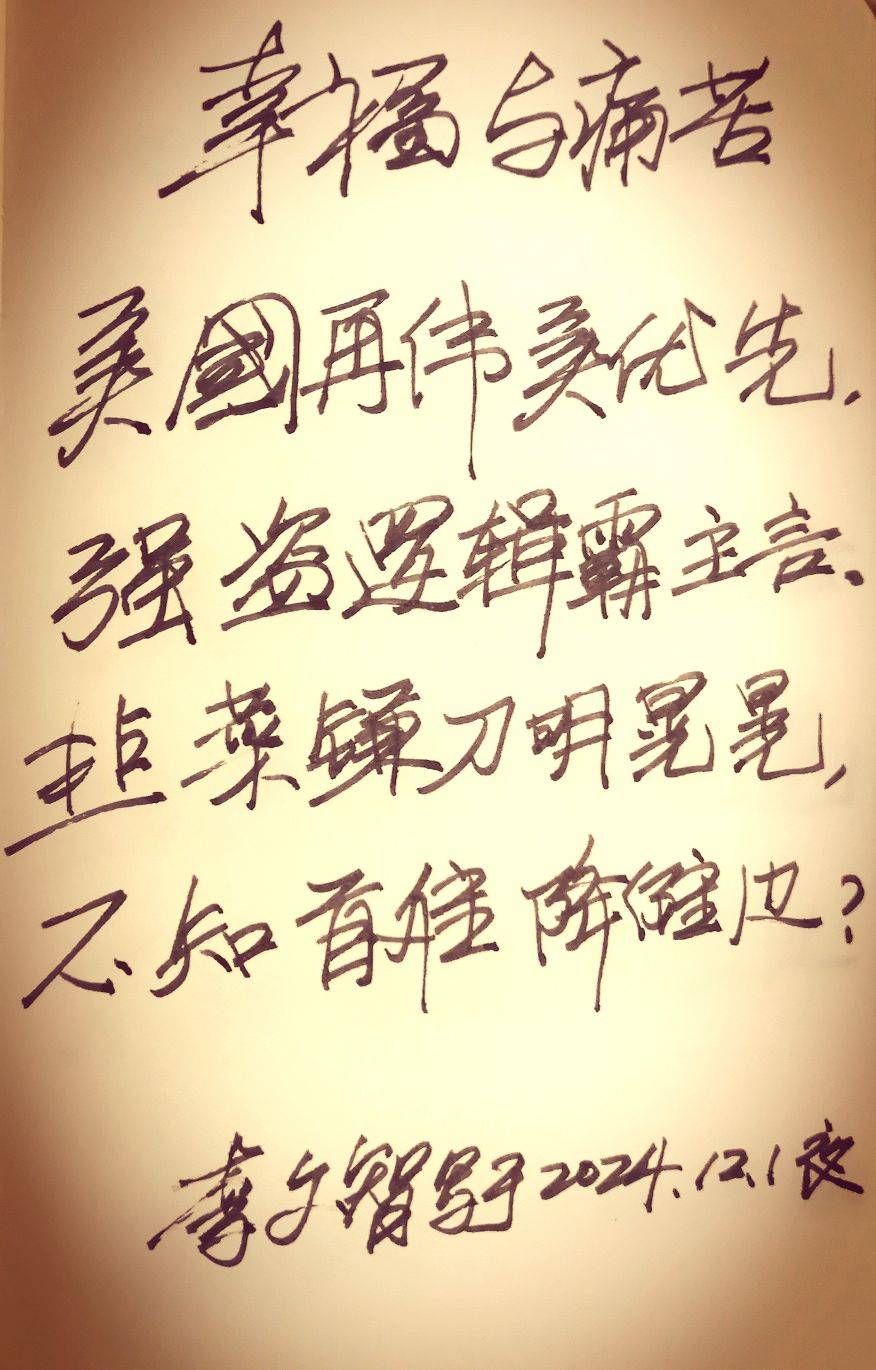 幸福与痛苦
美國再伟美优先，
强盗逻辑霸主言。
韭菜镰刀明晃晃，
不知首准降谁边？
李文智写于2024.12.1夜